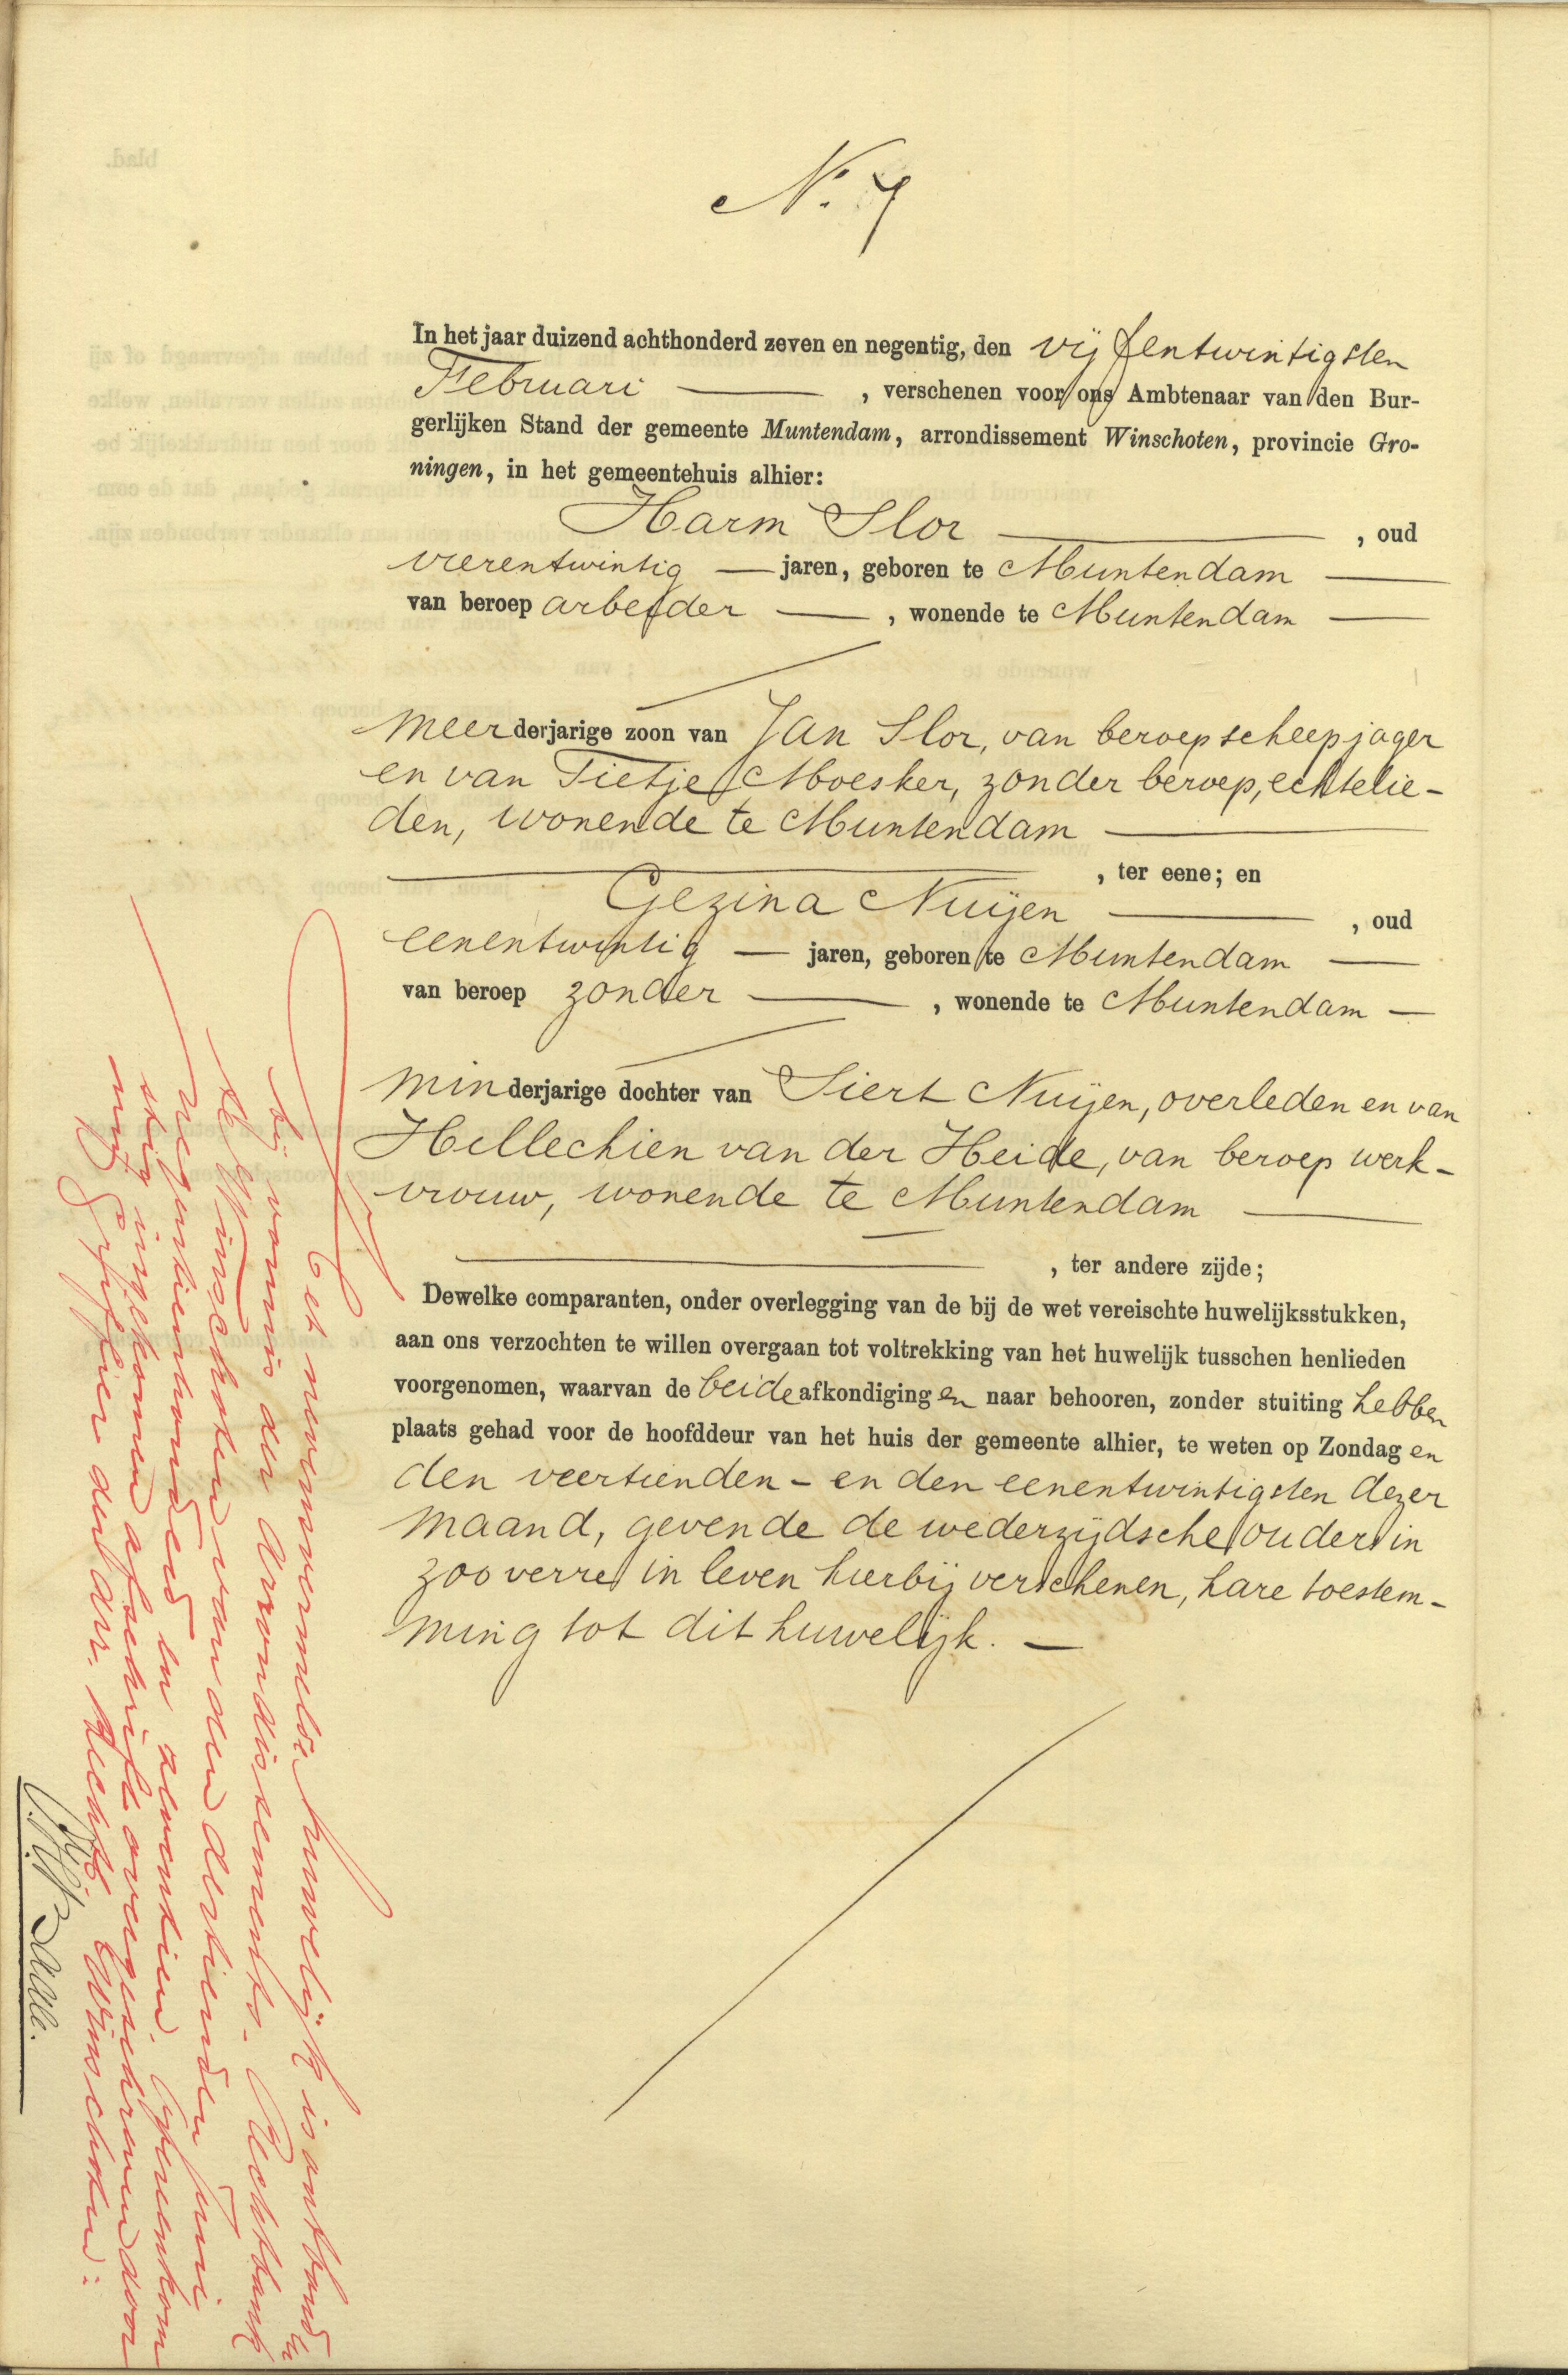 No. 7
In het jaar duizend achthonderd zeven en negentig, den vijfentwintigsten
Februari , verschenen voor ons Ambtenaar van den Bur-
gerlijken Stand der gemeente Muntendam, arrondissement Winschoten, provincie Gro-
ningen, in het gemeentehuis alhier:
Harm Slor , oud
vierentwintig jaren, geboren te Muntendam
van beroep arbeider , wonende te Muntendam
meerderjarige zoon van Jan Slor, van beroep scheepjager
en van Tietje Moesker, zonder beroep, echtelie-
den, wonende te Muntendam
, ter eene; en
Gezina Nuijen , oud
eenentwintig jaren, geboren te Muntendam
van beroep zonder , wonende te Muntendam
minderjarige dochter van Siert Nuijen, overleden en van
Hillechien van der Heide, van beroep werk-
vrouw, wonende te Muntendam
, ter andere zijde;
Dewelke comparanten, onder overlegging van de bij de wet vereischte huwelijksstukken,
aan ons verzochten te willen overgaan tot voltrekking van het huwelijk tusschen henlieden
voorgenomen, waarvan de beide afkondigingen naar behooren, zonder stuiting hebben
plaats gehad voor de hoofddeur van het huis der gemeente alhier, te weten op Zondag en
den veertienden - en den eenentwintigsten dezer
maand, gevende de wederzijdsche ouders in
zooverre in leven hierbij verschenen, hare toestem-
ming tot dit huwelijk. —
Het nevenvermelde huwelijk is ontbonden
bij vonnis der Arrondissements-Rechtbank
te Winschoten van den dertienden Juni
negentienhonderd en zeventien. Overeenkom
stig ingekomen afschrift overgeschreven door
mij Griffier der Arr. Rechtb. Winschoten: